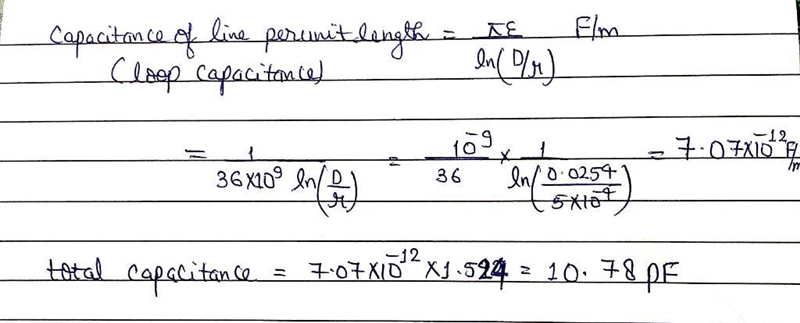 Capacitance of line perunit length = πε / ln(D/r) F/m
(loop capacitance)
= 1 / 36×10⁹ ln(D/r) = 10⁻⁹ / 36 × 1 / ln(0.0254 / 5×10⁻⁴) = 7.07×10⁻¹² F/m
total capacitance = 7.07×10⁻¹² ×1.524 = 10.78 pF